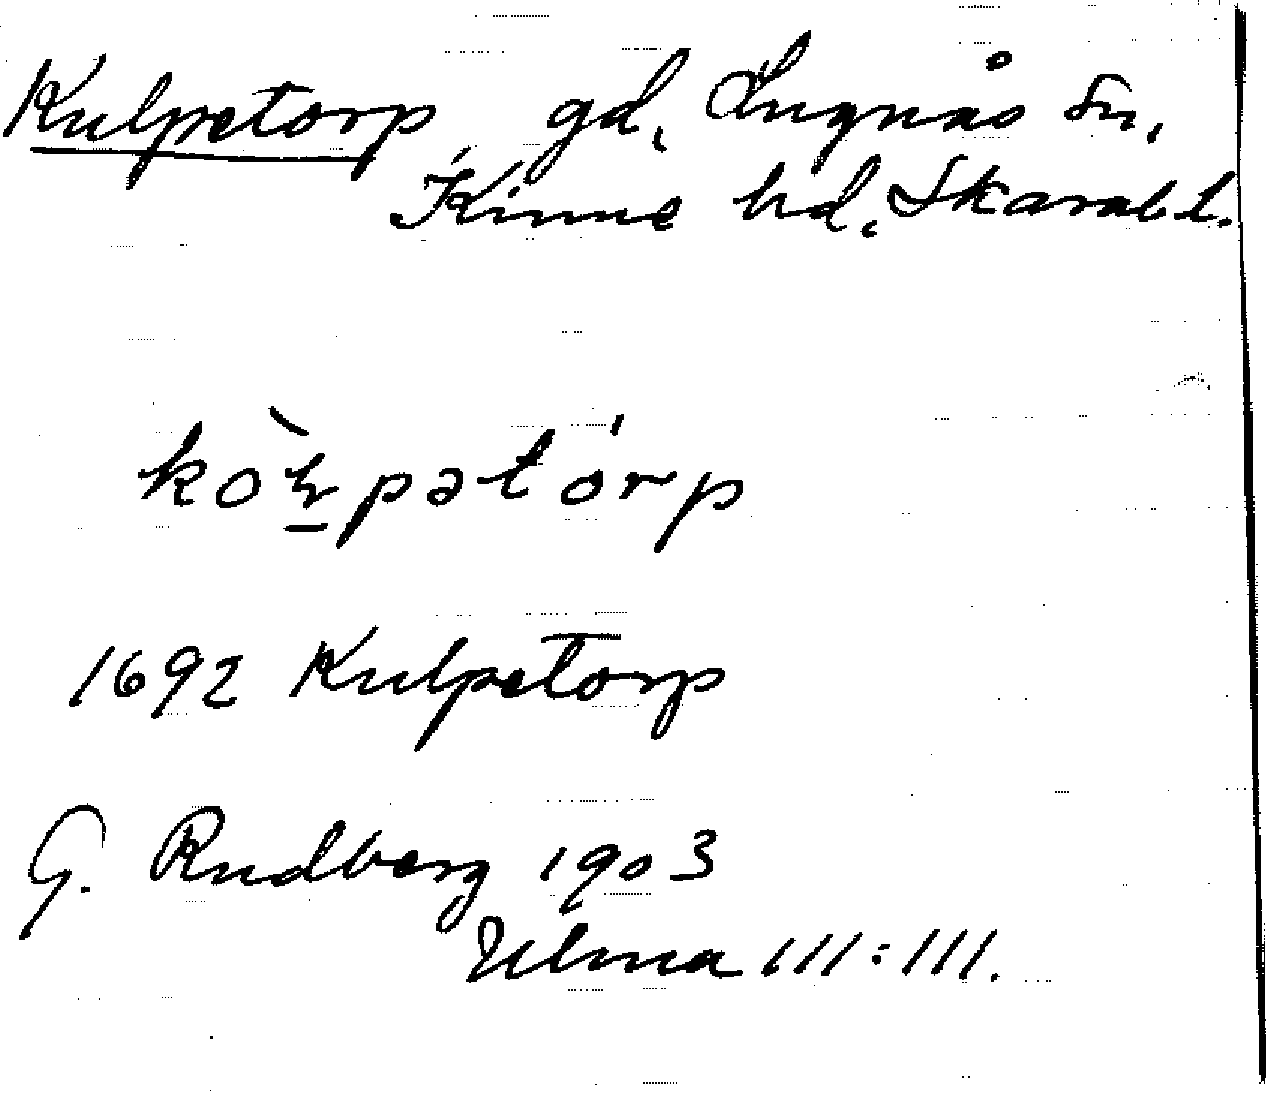 Kulpetorp gd, Lugnås sn,
Kinne hd, Skarab. l.
kòɽpətórp
1692 Kulpetorp
G. Rudberg 1903
Ulma 111:111.